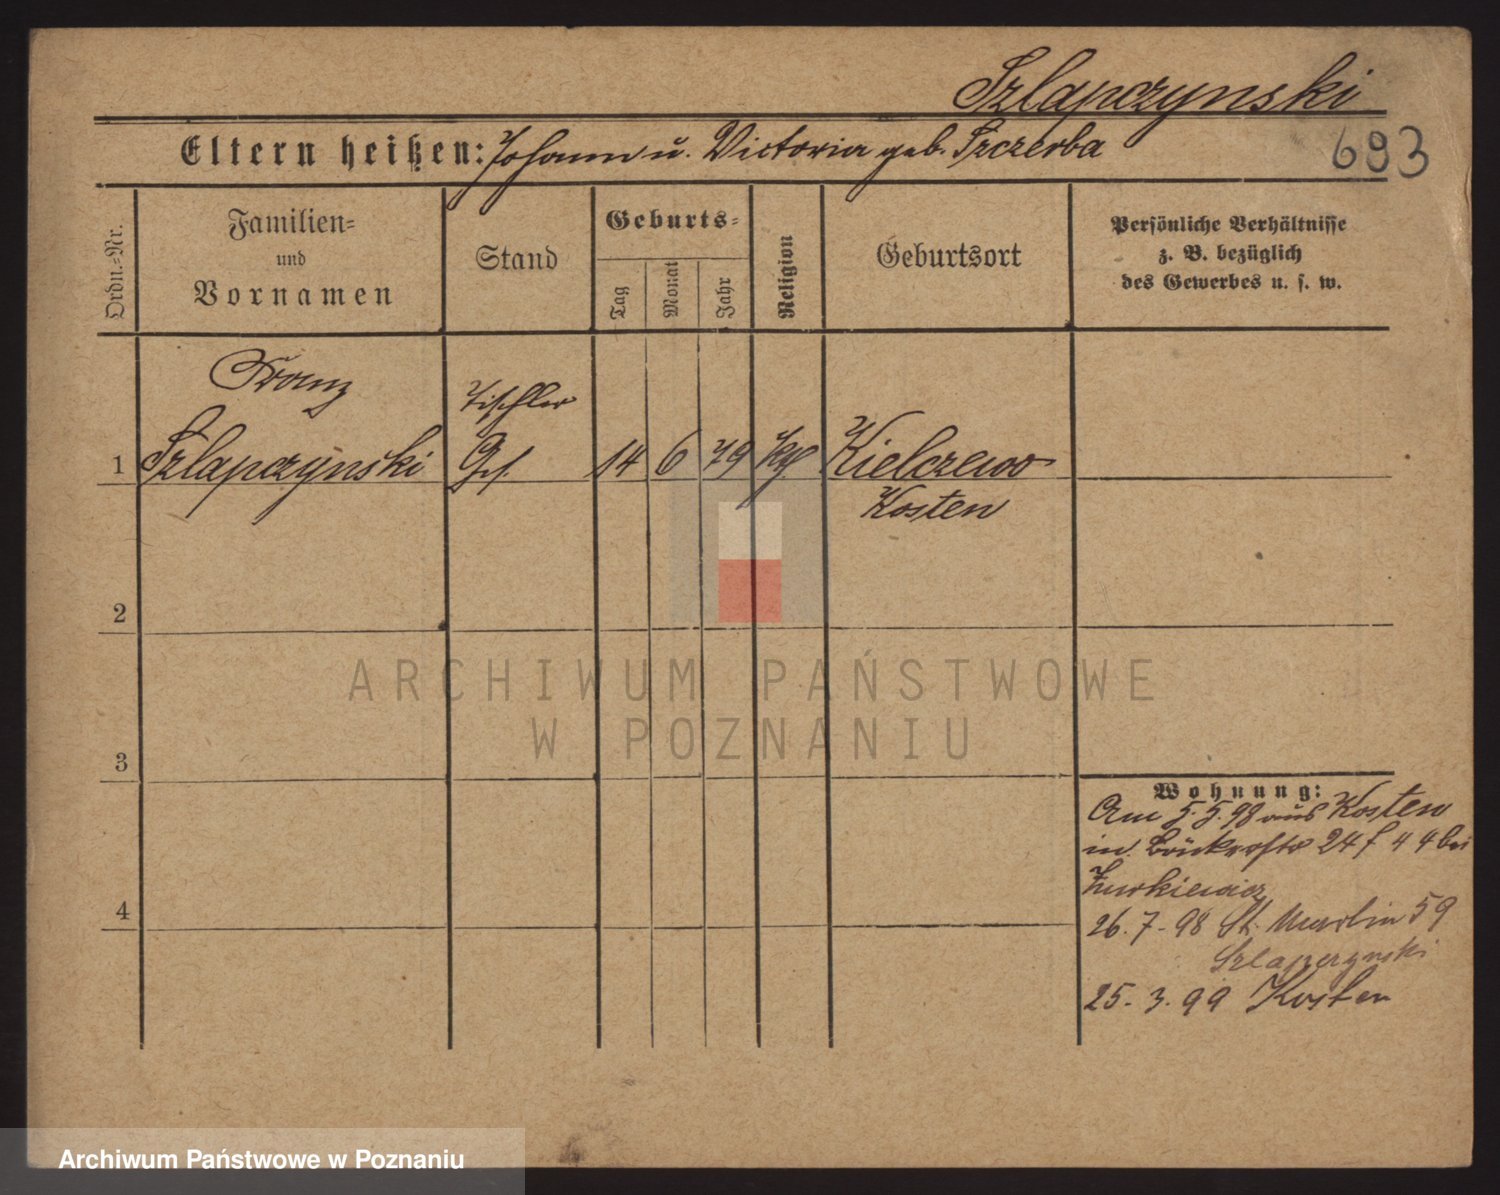 Szlapczynski
Eltern heißen: Johann u. Victoria geb. Szczerba
693
Ordn.-Nr.
Familien-
und
Vornamen
Stand
Geburts-
Tag
Monat
Jahr
Religion
Geburtsort
Persönliche Verhältnisse
z. B. bezüglich
des Gewerbes u. s. w.
Franz
Tischler
1 Szlapczynski Gs. 14 6 79 kth Kielczewo
Kosten
2
3
4
Wohnung:
Am 5.5.98 aus Kosten
in 24 4 bei
Zurkiewicz
26.7-98 St. Martin 59
Szlapczynski
25.3.99 Kosten
ARCHIWUM PAŃSTWOWE
W POZNANIU
Archiwum Państwowe w Poznaniu